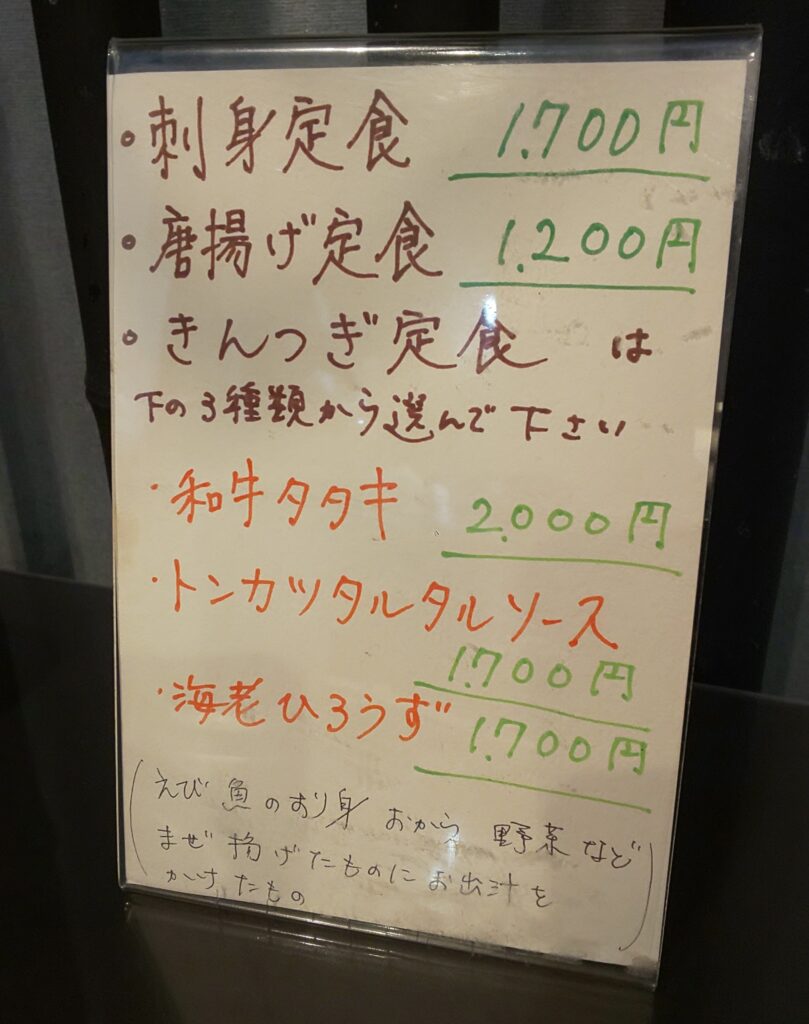 ・刺身定食 1.700円
・唐揚げ定食 1.200円
・きんつぎ定食 は
下の3種類から選んで下さい
・和牛タタキ 2.000円
・トンカツタルタルソース
1.700円
・海老ひろうず 1.700円
(えび 魚のすり身 おから 野菜など
まぜ 揚げたものにお出汁を
かけたもの)